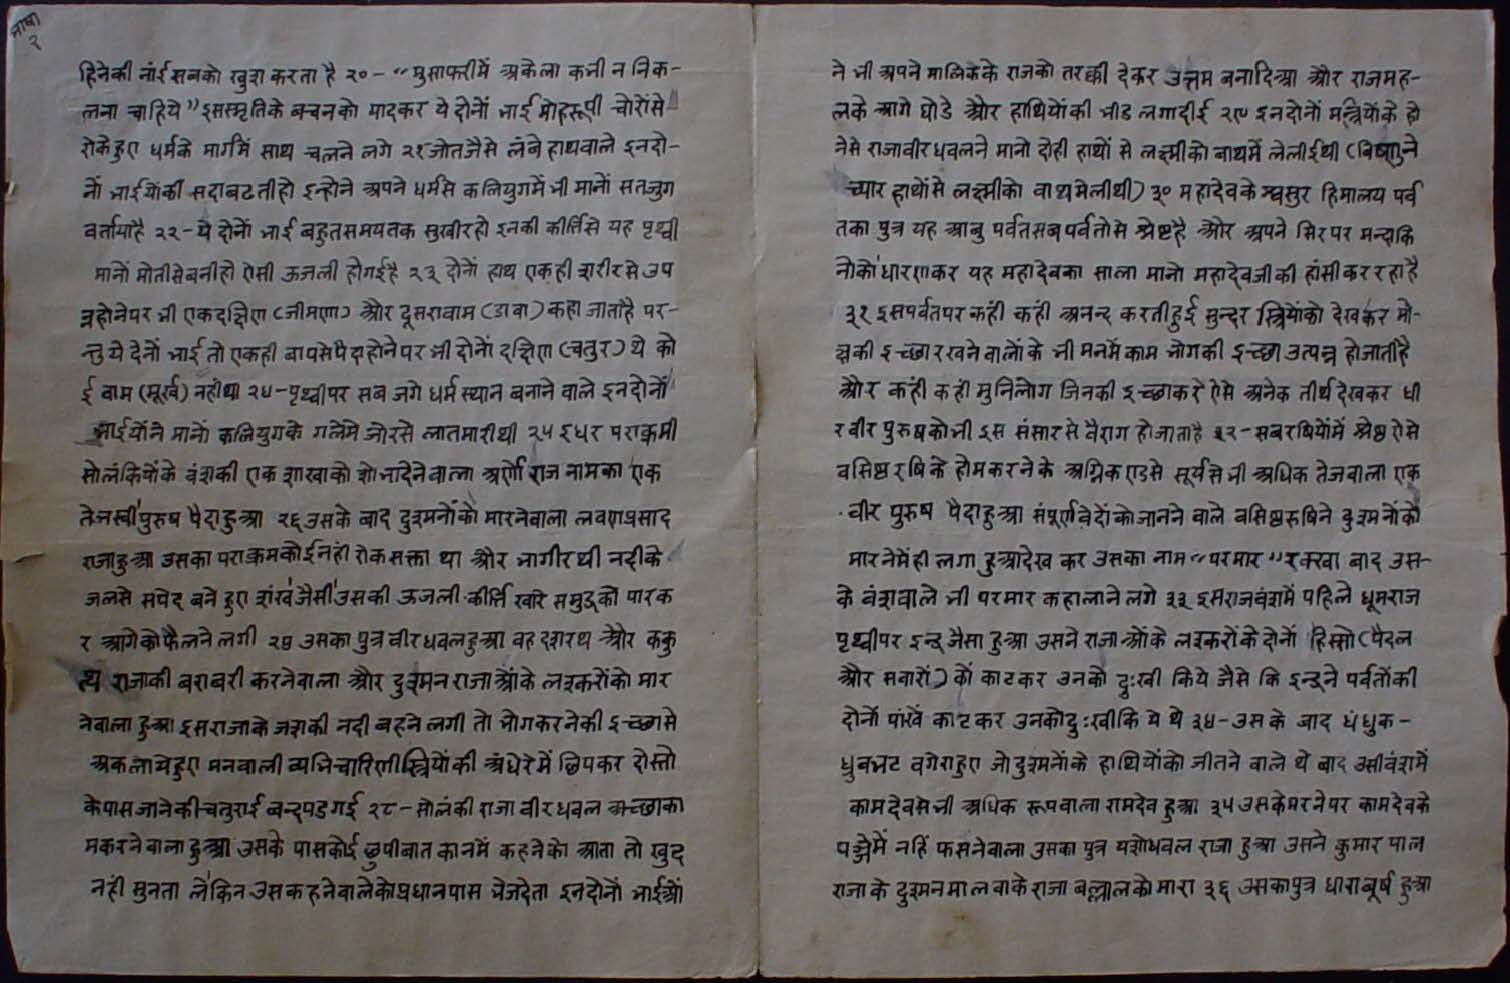 भाषा
२
हिनेकी नांई सबको खुश करता है २०- “मुसाफरीमें अकेला कभी न निक-
लना चाहिये” इसस्मृतिके बचनको यादकर ये दोनों भाई मोहरूपी चोरोंसे
रोकेहुए धर्मके मार्गमें साथ चलने लगे २१ जोतजैसे लंबे हाथवाले इनदो-
नों भाईयोंकी सदाबढतीहो इन्होने अपने धर्मसे कलियुगमें भी मानों सतजुग
वर्तायाहै २२- ये दोनों भाई बहुतसमयतक सुखीरहो इनकी कीर्त्तिसे यह पृथ्वी
मानों मोतीसेबनीहो ऐसी ऊजली होगईहै २३ दोनों हाथ एकही शरीरसे उप
न्नहोनेपर भी एकदक्षिण (जीमणा) और दूसरावाम (डाबा) कहा जाताहै पर-
न्तु ये देनों भाई तो एकही बापसेपैदाहोनेपर भी दोनों दक्षिण (चतुर) थे को
ई वाम (मूर्ख) नहीथा २४- पृथ्वीपर सब जगे धर्मस्थान बनाने वाले इनदोनों
भाईयोंने मानों कलियुगके गलेमे जोरसे लातमारीथी २५ इधर पराक्रमी
सोलंकियोंके वंशकी एक शाखाको शोभादेनेवाला अर्णोराज नामका एक
तेजस्वी पुरुष पैदाहुआ २६ उसके बाद दुश्मनोंको मारनेवाला लवणप्रसाद
राजाहुआ उसका पराक्रमकोईनहीं रोकसक्ता था और भागीरथी नदीके
जलसे सपेद बने हुए शंख जैसी उसकी ऊजली कीर्त्ति खारे समुद्रको पारक
र आगेको फैलने लगी २७ उसका पुत्र वीरधवलहुआ वह दशरथ और ककु
त्थ राजाकी बराबरी करनेवाला और दुश्मन राजाओंके लश्करोंको मार
नेवाला हुआ इसराजाके जशकी नदी बहने लगी तो भोगकरनेकी इच्छासे
अकलायेहुए मनवाली व्यभिचारिणीस्त्रियोंकी अंधेरेमें छिपकर दोस्तो
केपास जानेकी चतुराई बन्दपडगई २८- सोलंकी राजा वीरधवल अच्छाका
मकरनेवाला हुआ उसके पासकोई छुपीबात कानमें कहनेको आता तो खुद
नहीं सुनता लेकिन उसकहनेवालेकोप्रधानपास भेजदेता इनदोनों भाईओं
ने भी अपने मालिकके राजको तरक्की देकर उत्तम बनादिआ और राजमह-
लके आगे घोडे और हाथियोंकी भीड लगादीई २९ इनदोनों मन्त्रियोंके हो
नेसे राजावीरधवलने मानो दोही हाथों से लक्ष्मीको बाथमें लेलीईथी (विष्णुने
च्यार हाथोंसे लक्ष्मीको बाथमेलीथी) ३० महादेवके श्वसुर हिमालय पर्व
तका पुत्र यह आबु पर्वतसबपर्वतोसे श्रेष्टहै और अपने सिरपर मन्दाकि
नीको धारणकर यह महादेवका साला मानो महादेवजीकी हांसीकररहाहै
३१ इसपर्वतपर कही कही अनन्द करतीहुई सुन्दर स्त्रियोंको देखकर मो-
क्षकी इच्छारखनेवालोंके भी मनमें काम भोगकी इच्छा उत्पन्न होजातीहै
और कही कही मुनिलोग जिनकी इच्छाकरे ऐसे अनेक तीर्थ देखकर धी
रवीर पुरुषकोभी इस संसारसे वैराग होजाताहै ३२- सबरषियोंमें श्रेष्ठ ऐसे
वसिष्ठरषिके होमकरनेके अग्निकुण्डसे सूर्यसेभी अधिक तेजवाला एक
वीर पुरुष पैदाहुआ संपूर्णवेदोंकोजानने वाले वसिष्ठरुषिने दुश्मनोंको
मारनेमेंही लगा हुआदेखकर उसका नाम “परमार” रक्खा बाद उस-
के वंशवाले भी परमार कहालाने लगे ३३ इसराजवंशमें पहिले धूमराज
पृथ्वीपर इन्द्र जैसा हुआ उसने राजाओंके लश्करोंके दोनों हिस्सो (पैदल
और सवारों) कों काटकर उनको दुःखी किये जैसे कि इन्द्रने पर्वतोंकी
दोनों पांखें काटकर उनकोदुःखीकिये थे ३४- उसके बाद धंधुक-
ध्रुवभट वगेराहुए जोदुश्मनोंके हाथियोंको जीतने वाले थे बाद उसीवंशमें
कामदेवसेभी अधिक रूपवाला रामदेव हुआ ३५ उसकेमरनेपर कामदेवके
पञ्जेमें नहिं फसनेवाला उसका पुत्र यशोधवल राजा हुआ उसने कुमारपाल
राजाके दुश्मनमालवाके राजा बल्लालकोमारा ३६ उसकापुत्र धाराबर्ष हुआ